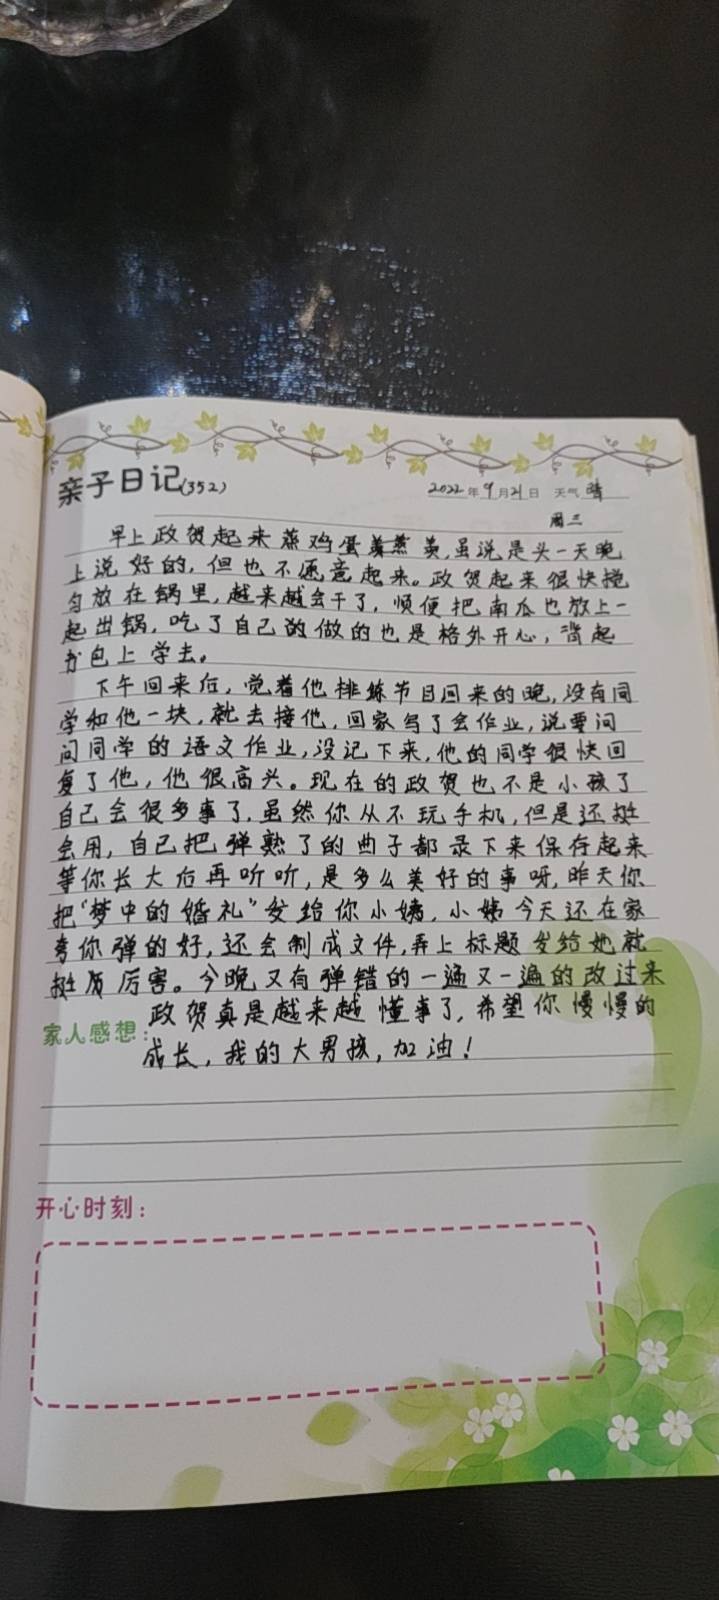 亲子日记(352)
2022年9月21日 天气 晴
周三
早上政贺起来蒸鸡蛋羹,虽说是头一天晚
上说好的,但也不愿意起来。政贺起来很快搅
匀放在锅里,越来越会干了,顺便把南瓜也放上一
起出锅,吃了自己的做的也是格外开心,背起
书包上学去。
下午回来后,觉着他排练节目回来的晚,没有同
学和他一块,就去接他,回家写了会作业,说要问
问同学的语文作业,没记下来,他的同学很快回
复了他,他很高兴。现在的政贺也不是小孩了
自己会很多事了,虽然你从不玩手机,但是还挺
会用,自己把弹熟了的曲子都录下来保存起来
等你长大后再听听,是多么美好的事呀,昨天你
把“梦中的婚礼”发给你小姨,小姨今天还在家
夸你弹的好,还会制成文件,弄上标题发给她就
挺厉害。今晚又有弹错的一遍又一遍的改过来
家人感想:政贺真是越来越懂事了,希望你慢慢的
成长,我的大男孩,加油!
开心时刻: